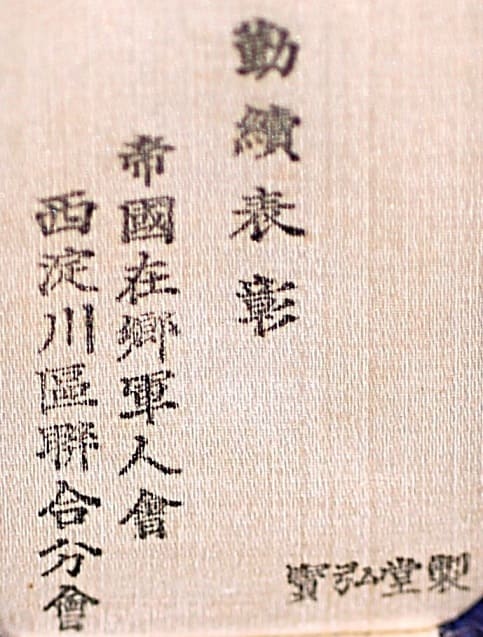 勤續表彰
帝國在鄉軍人會
西淀川區聯合分會
寳弘堂製